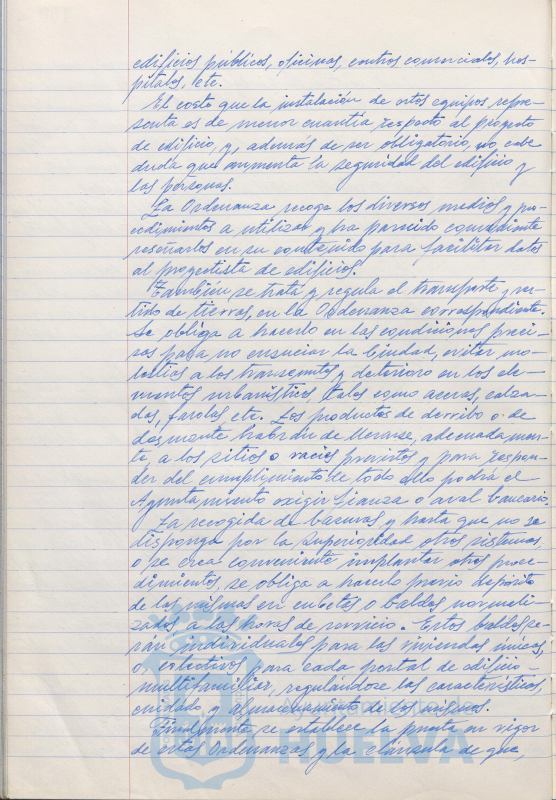 edificios públicos, oficinas, centros comerciales, hos-
pitales, etc.
El costo que la instalación de estos equipos repre-
senta es de menor cuantía respecto al proyecto
de edificio, y, además de ser obligatorio, no cabe
duda que aumenta la seguridad del edificio y
las personas.
La Ordenanza recoge los diversos medios y pro-
cedimientos a utilizar y ha parecido conveniente
reseñarlos en su contenido para facilitar datos
al proyectista de edificios.
También se trata y regula el transporte y ver-
tido de tierras, en la Ordenanza correspondiente.
Se obliga a hacerlo en las condiciones preci-
sas para no ensuciar la Ciudad, evitar mo-
lestias a los transeuntes y deterioro en los ele-
mentos urbanísticos, tales como aceras, calza-
das, farolas, etc. Los productos de derribo o de
desmonte habrán de llevarse, adecuadamen-
te a los sitios o vacies previstos y para respon-
der del cumplimiento de todo ello podrá el
Ayuntamiento exigir fianza o aval bancario.
La recogida de basuras, y hasta que no se
disponga por la superioridad otros sistemas,
o se crea conveniente implantar otros proce-
dimientos, se obliga a hacerlo previo depósito
de las mismas en cubetas o baldes, normali-
zados a las horas de servicio. Estos baldes se-
rán individuales para las viviendas únicas,
o, colectivos para cada portal de edificio
multifamiliar, regulándose las características,
cuidado, y almacenamiento de los mismos.
Finalmente se establece la puesta en vigor
de estas Ordenanzas y la cláusula de que,
HUELVA